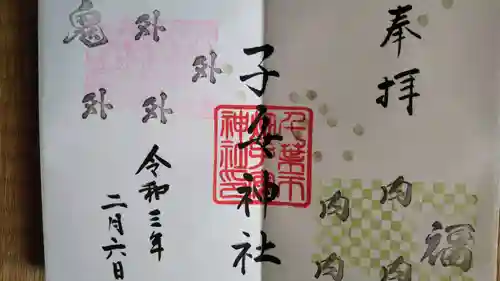 奉拝
福
内
内
内
内
子安神社
千葉市
子安
神社印
鬼
外
外
外
外
令和三年
二月六日